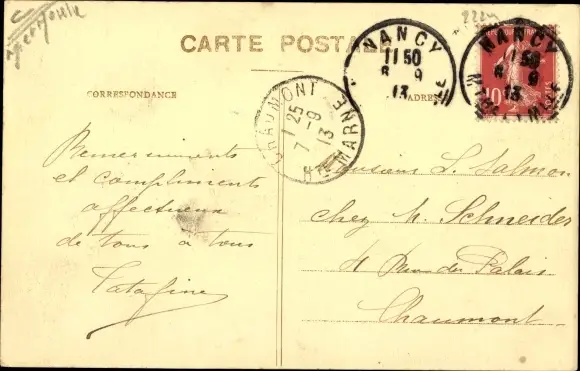 CARTE POSTALE
CORRESPONDANCE
ADRES
NANCY
11 50
8 9
13
NANCY
1 50
8 9
13
10
CHAUMONT
1 25
7 -9
13
Hte MARNE
Remerciements
et compliments
affectueux
de tous à tous
Monsieur L. Salmon
chez M. Schneider
4 Rue du Palais
Chaumont